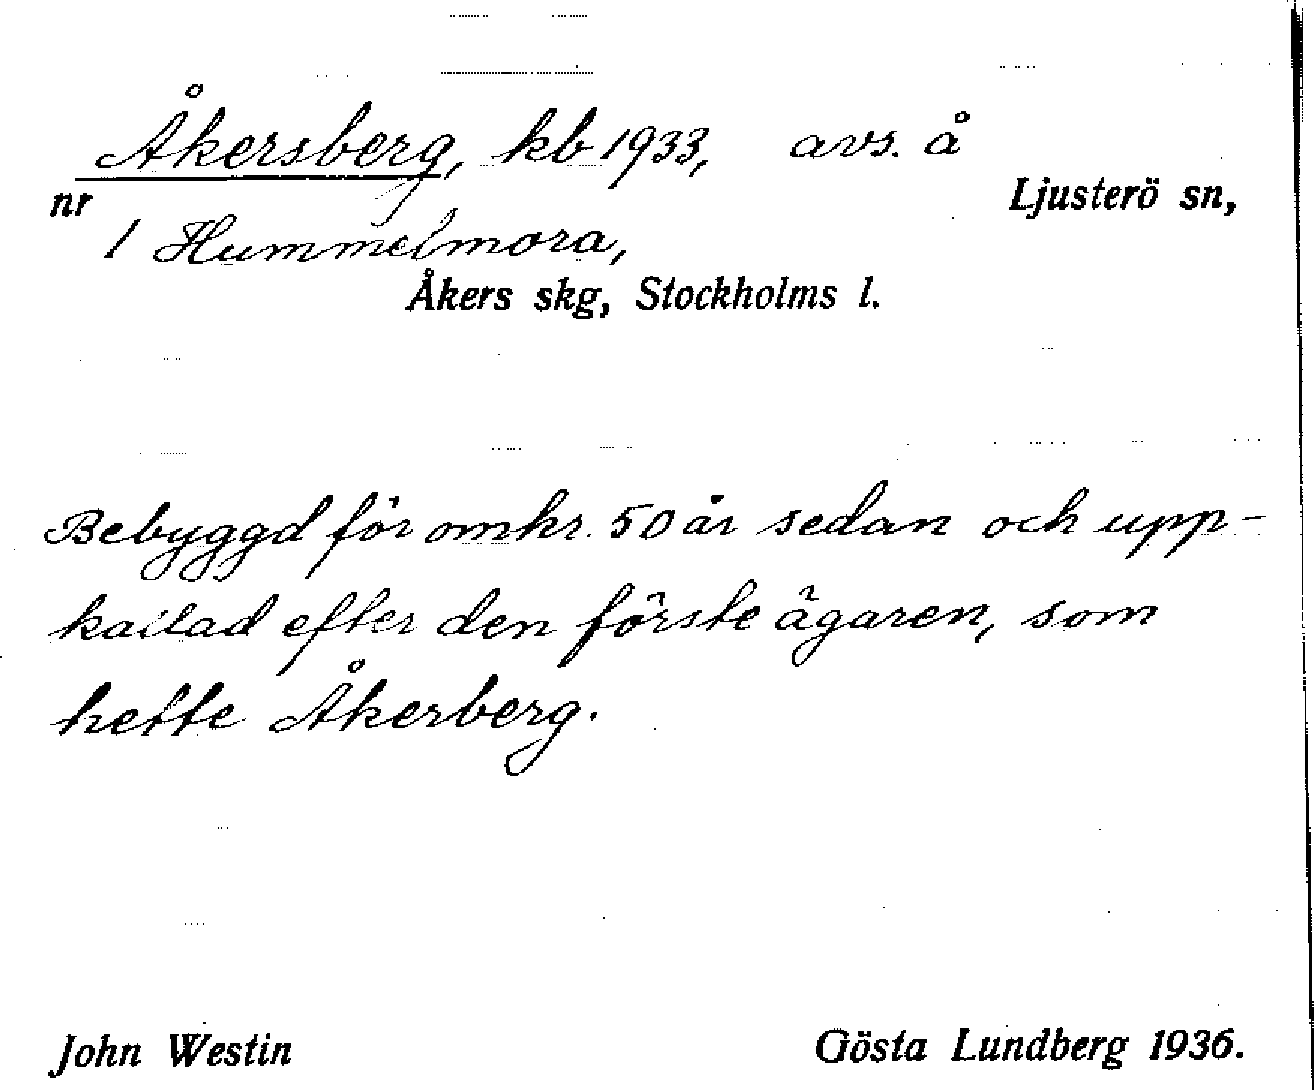 Åkersberg, kb 1933, avs. å
Ljusterö sn,
nr 1 Hummelmora,
Åkers skg, Stockholms l.
Bebyggd för omkr. 50 år sedan och upp-
kallad efter den förste ägaren, som
hette Åkerberg.
John Westin Gösta Lundberg 1936.